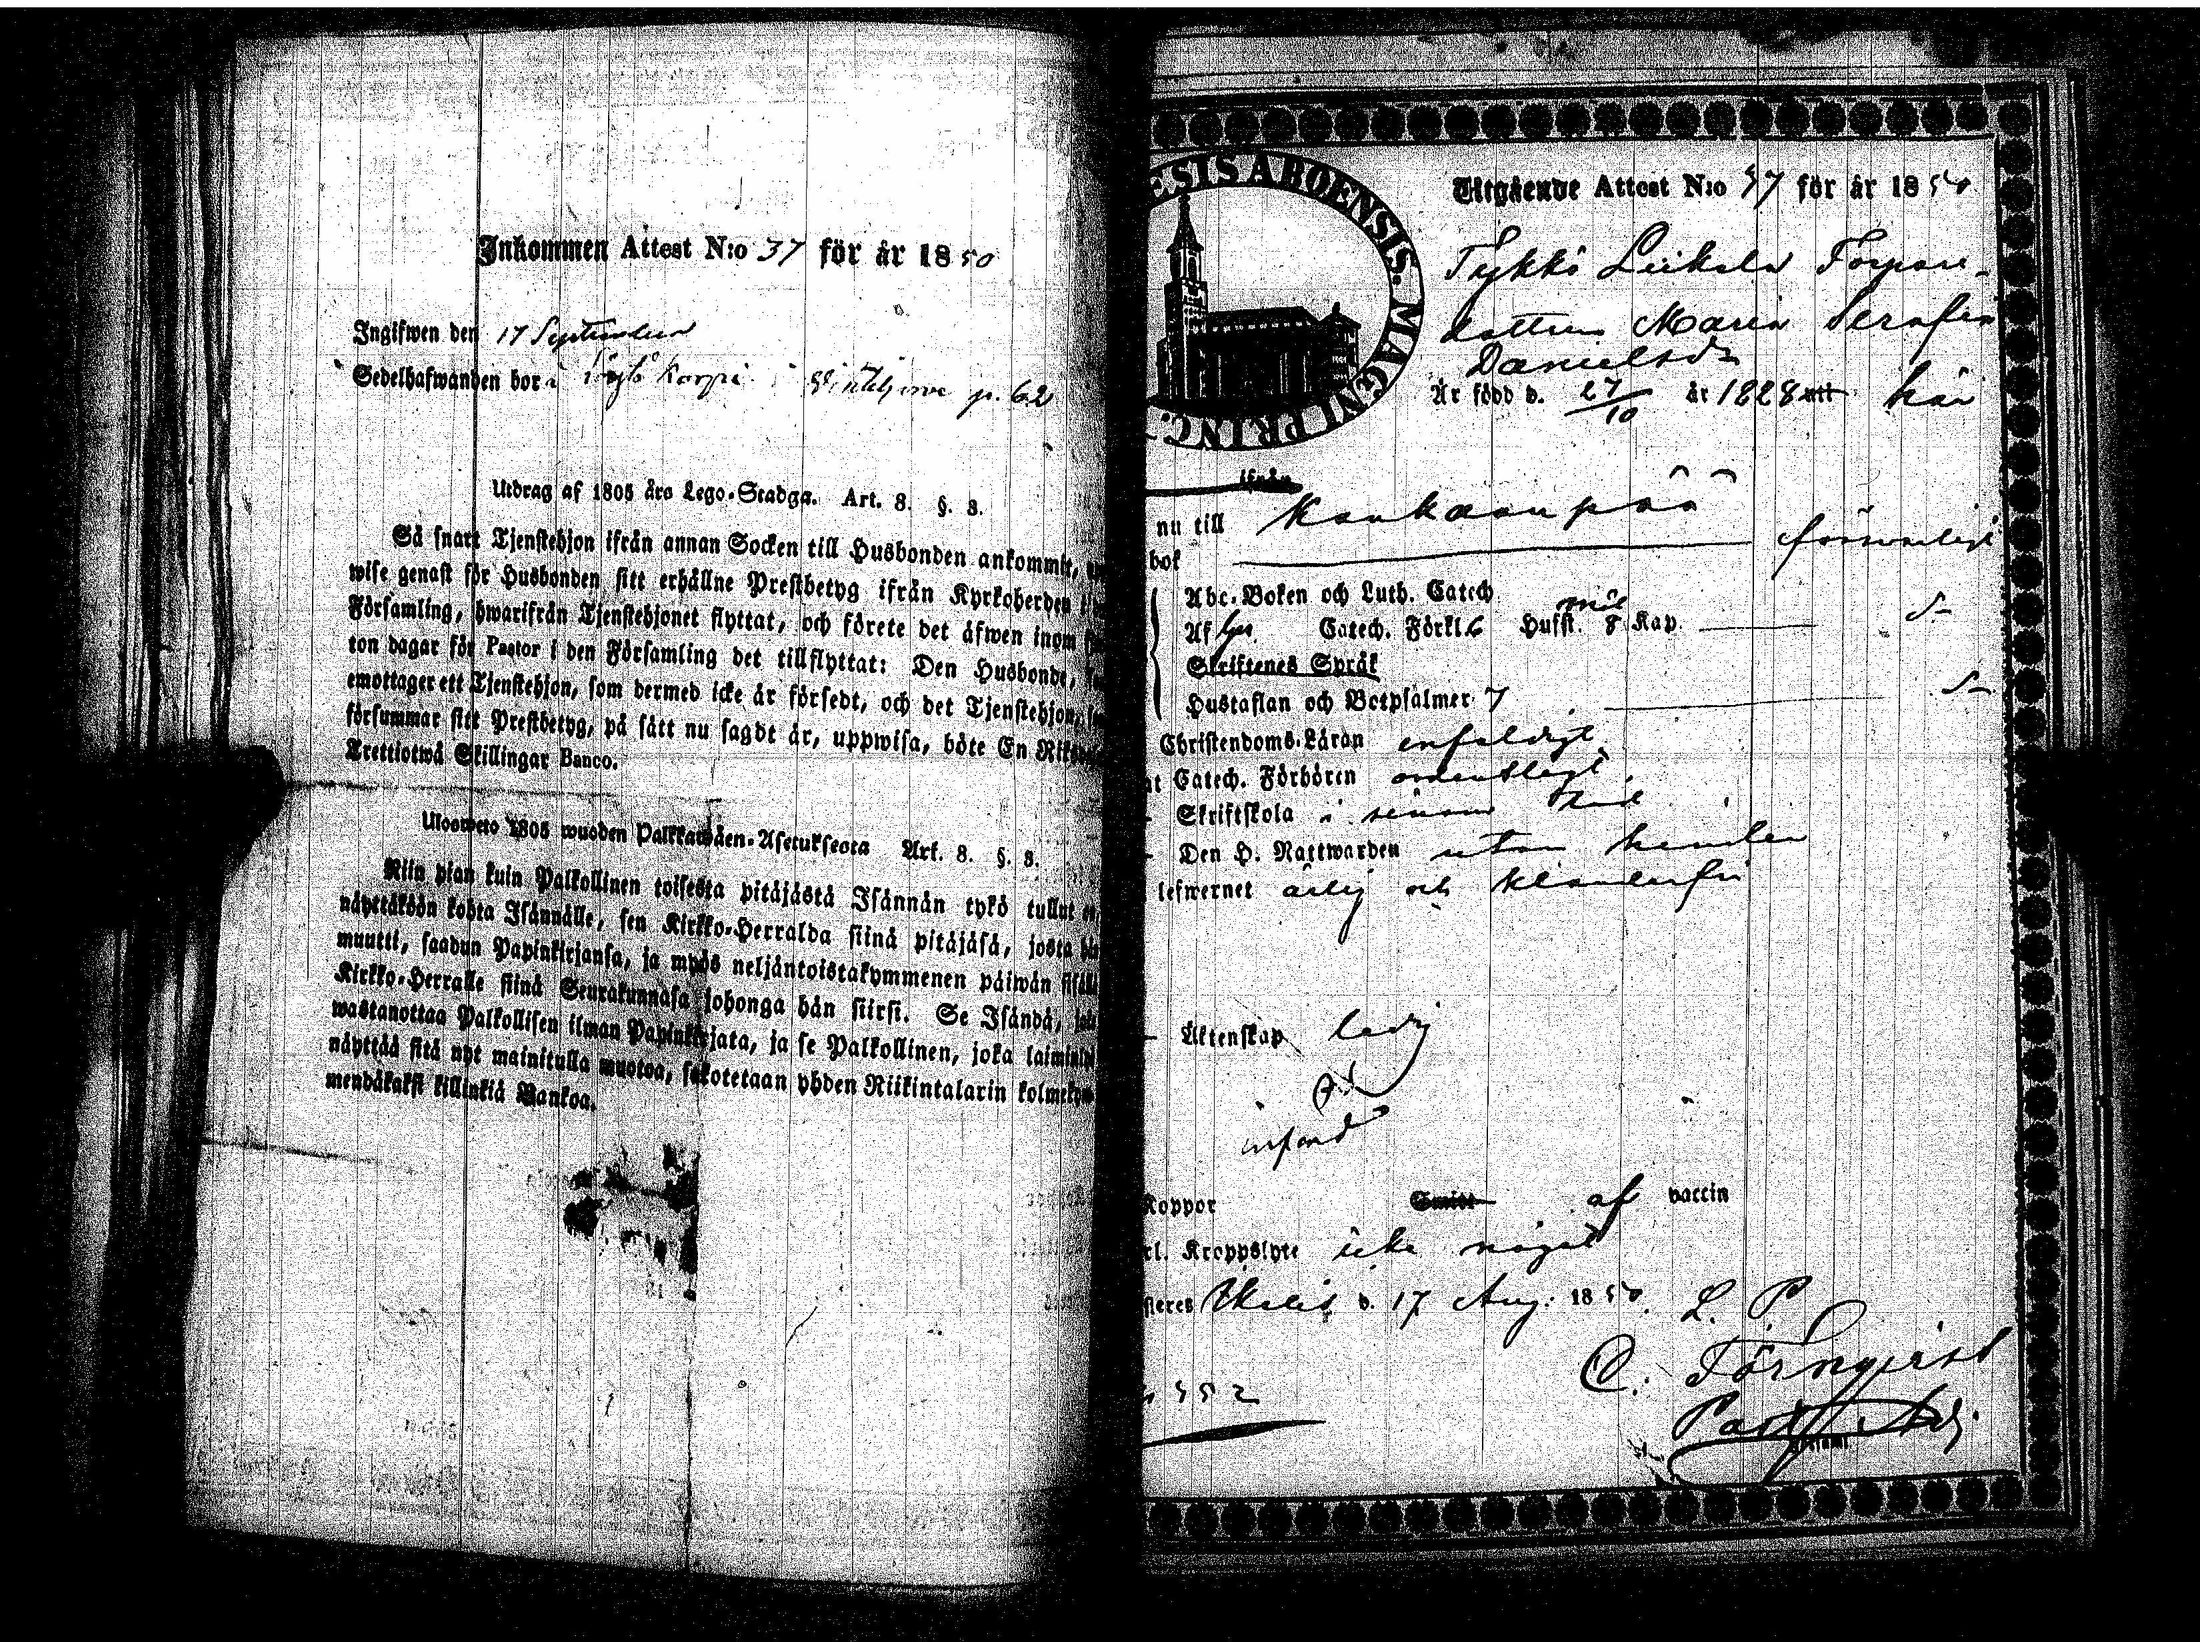 Inkommen Attest N:o 37 för år 1850
Ingifwen den 17 September
Sedelhafwanden bor i Korpi p. 62
Utdrag af 1805 års Lego-Stadga. Art. 8. §. 3.
Så snart Tjenstehjon ifrån annan Socken till Husbonden ankommit,
wise genast för Husbonden sitt erhållne Prestbetyg ifrån Kyrkoherden
Församling, hwarifrån Tjenstehjonet flyttat, och förete det äfwen inom
ton dagar för Pastor i den Församling det tillflyttat: Den Husbonde,
emottager ett Tjenstehjon, som dermed icke är försedt, och det Tjenstehjon,
försummar sitt Prestbetyg, på sätt nu sagdt är, uppwisa, böte En
Trettiotwå Skillingar Banco.
Ulosweto 1805 wuoden Palkkawäen-Asetuksesta Art. 8. §. 3.
Niin pian kuin Palkollinen toisesta pitäjästä Isännän tykö tullut
näyttäköön kohta Isännälle, sen Kirkko-Herralda siinä pitäjäsä, josta
muutti, saadun Papinkirjansa, ja myös neljäntoistakymmenen päiwän
Kirkko-Herralle siinä Seurakunnasa johonga hän siirsi. Se Isändä,
wastanottaa Palkollisen ilman Papinkirjata, ja se Palkollinen, joka
näyttää sitä nyt mainitulla muotoa, sakotetaan yhden Riikintalarin
mendäkaksi killinkiä Bankoa.
ESIS ABOENSIS. MAGNI PRINC.
Utgående Attest N:o 57 för år 1850
Tykkö Leikola Torpare-
dottren Maria Serafia
Danielsdr
Är född d. 27/10 år 1828 uti här
ifrån
nu till Kankaanpää
bok försvarligt
Abc-Boken och Luth. Catech
Af Catech. Förkl. 6 Hufst. 8 Kap. d-
Skriftenes Språk
Hustaflan och Botpsalmer 7 d-
Christendoms-Läran enfaldigt
Catech. Förhören ordentligt.
Skriftskola i
Den H. Nattwarden utan hinder
lefwernet ärlig och klanderfri
Äktenskap ledig
införd
Koppor af vaccin
Kroppslyte icke något
d. 17 Aug. 1850. L. P.
C. Törnqvist
Past. Adj.
552